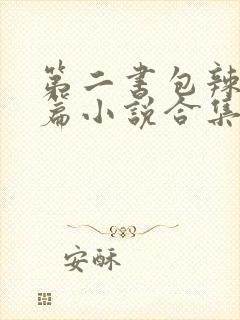 第二书包辣
篇小说合集
安酥